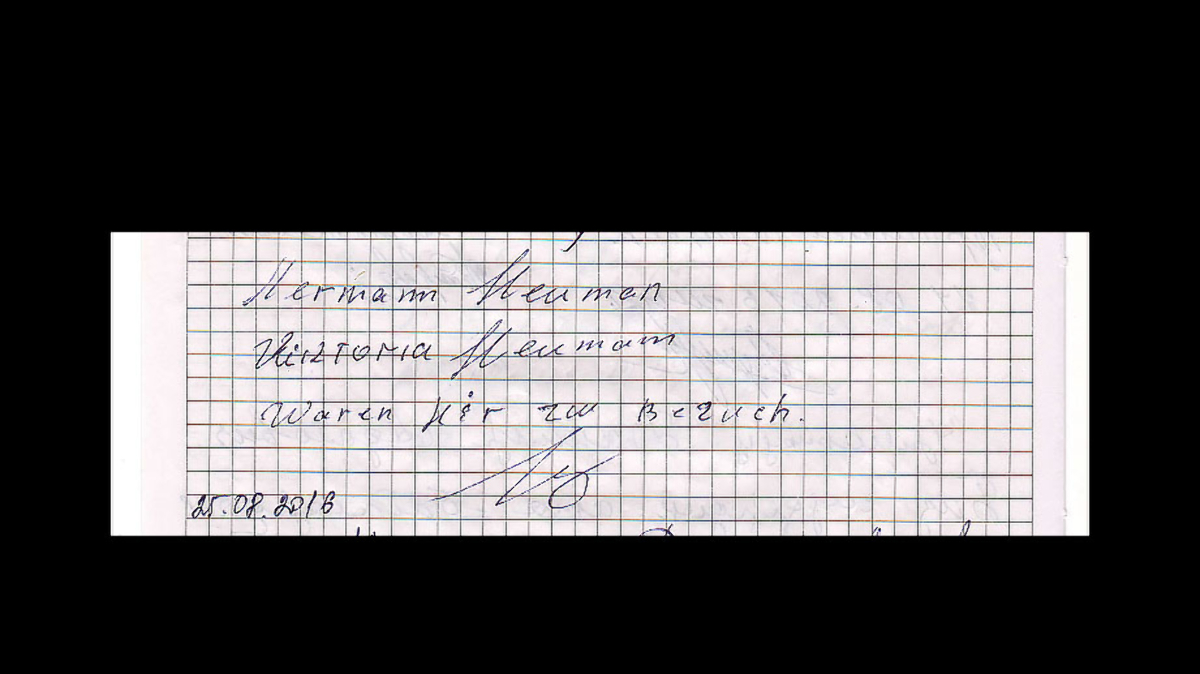 Hermann Neuman
Viktoria Neumann
Waren hir zu Bezuch.
25.08.2016